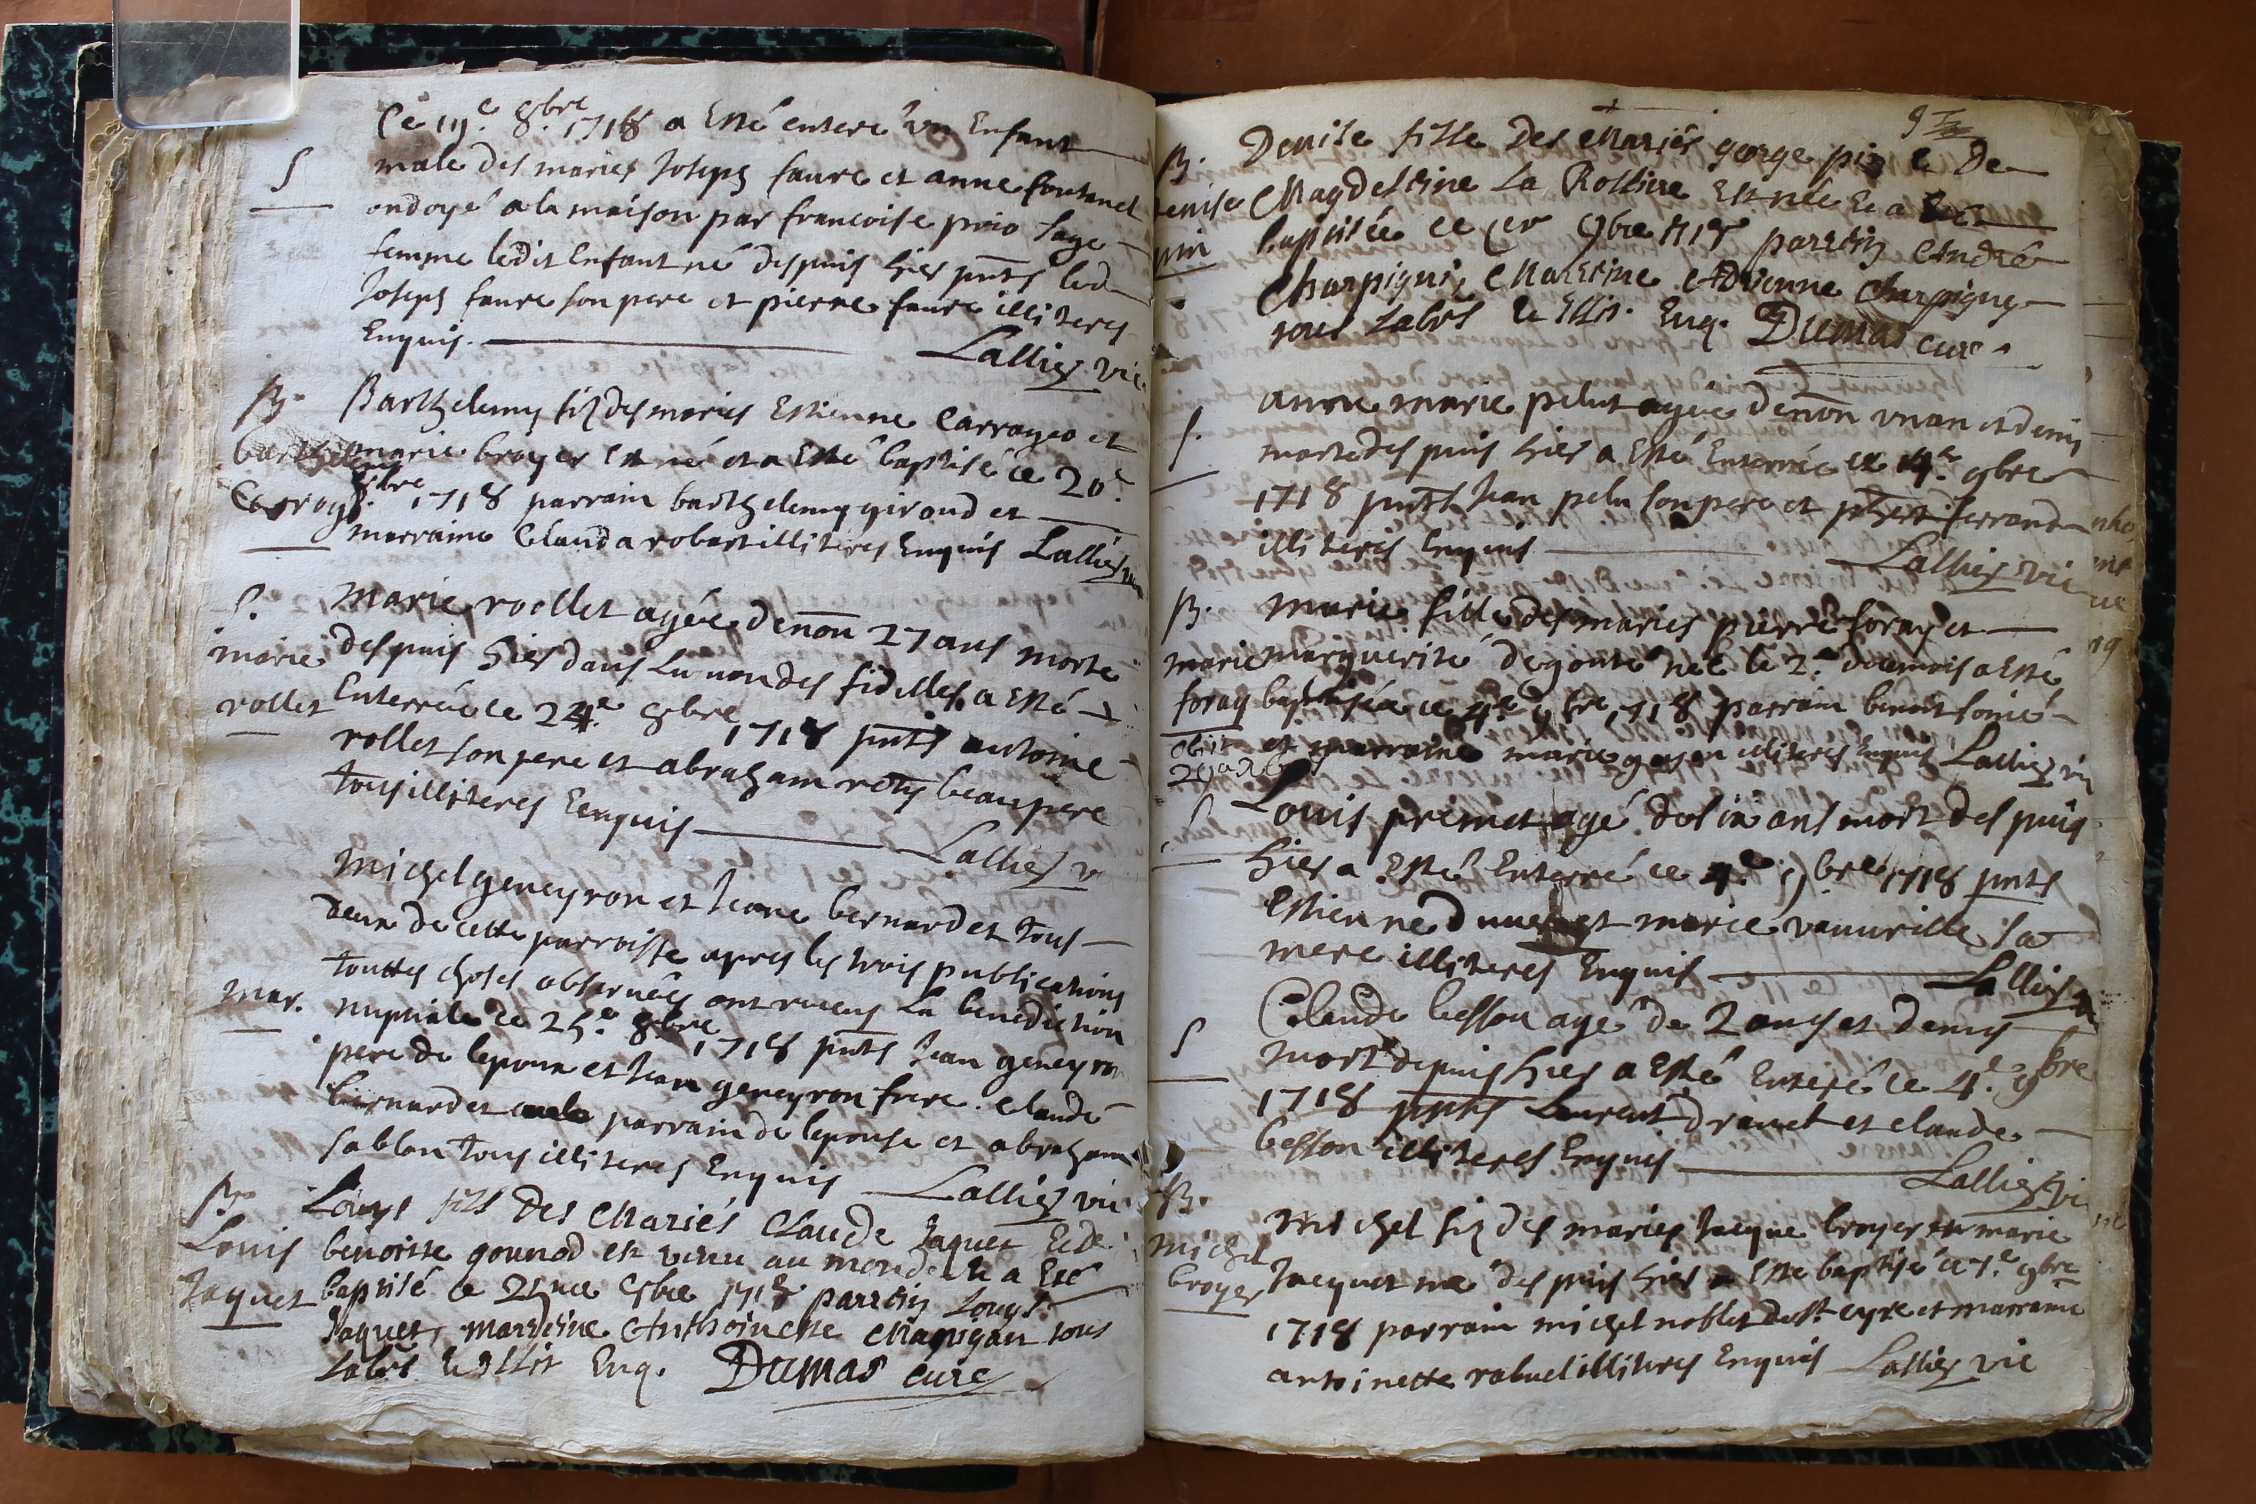 Ce 19.e 8.bre 1718 a Esté enteré un Enfant
S
male des maries Joseph faure et anne fontanel
ondoyé a la maison par francoise prio sage
femme ledit Enfant né despuis hier pnts led
Joseph faure son pere et pierre faure illiteres
Enquis. Lallier vic
B. Barthelemy fiz des maries Estienne Carrageo et
barthelemy marie broyer Est né et a Esté baptisé ce 20.e
8bre 1718 parrain barthelemy giroud et
marraine Clauda robert illiteres Enquis Lallier
S. marie roellet agée denon 27 ans morte
marie despuis hier dans Lunion des fidelles a esté
rollet Enterrée ce 24.e 8bre 1718 pnts antoine
rollet son pere et abraham beaupere
tous illiteres Eenquis Lallier v
michel geneyron et Jeane bernardet tous
deux de cette parroisse apres les trois publications
touttes choses observées ont receus La benediction
mar. nuptiale ce 25.e 8bre 1718 pnts Jean geneyron
pere de lepoux et Jean geneyron frere. claude
bernardet parrain de lepouse et abraham
sablon tous illiteres Enquis Lallier vic
B. Louys fils Des Mariés Claude Jaquet Et de
Louis benoiste gounod est venu au monde Et a Eté
Jaquet baptisé ce 8bre 1718 parrein Louys
Jaquet, marreine Anthoinette tous
Enq. Dumas curé
B. Denise fille Des Mariés george pin e De
Denise Magdeleine La Rolliere Est née Et a Eté
pin baptisée ce 9bre 1718 parrein André
Charpigni, Marreine charpigny
tous Enq. Dumas curé
S. anne marie pelu agée denon un an et demy
morte despuis hier a Esté Enterrée ce 4.e 9bre
1718 pnts Jean pelu son pere et ferrand
illiteres Enquis Lallier vic
B. marie fille des maries pierre foray et
marie marguerite degoute née le 2.e du mois a Esté
foray baptisée ce 4.e 9bre 1718 parrain benoit
obiit et marraine marie illiteres Enquis Lallier vic
S Louis primet agé de six ans mort despuis
hier a Esté Enterré ce 4.e 9bre 1718 pnts
Estienne et marie sa
mere illiteres Enquis Lallier
Claude besson agé de 2 ans et demy
S mort depuis hier a Esté Enteré ce 4.e 9bre
1718 pnts Laurent dranet et claude
besson illiteres Enquis Lallier vic
B.
michel michel fiz des maries Jacque broyer et marie
broyer Jacquet né despuis hier a Esté baptisé ce 7.e 9bre
1718 parrain michel noblet de st. cyre et marraine
antoinette rabuel illiteres Enquis Lallier vic